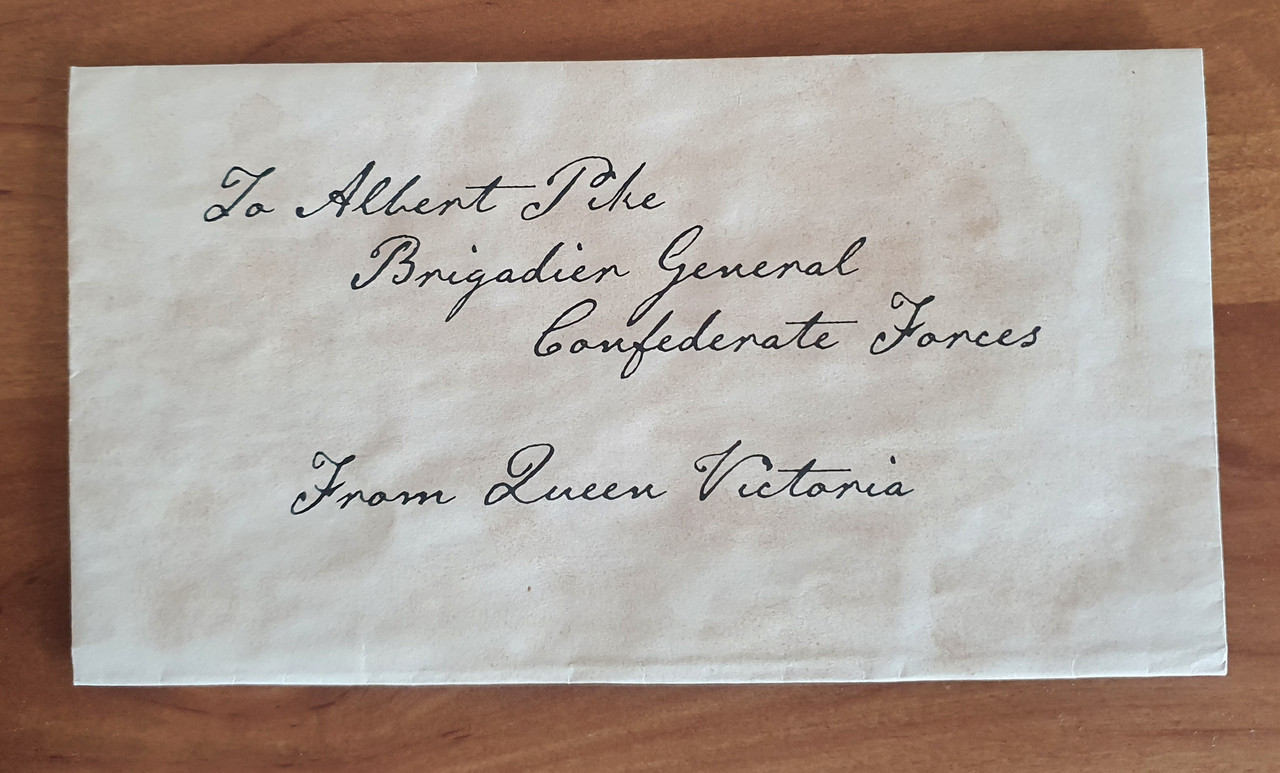 To Albert Pike
Brigadier General
Confederate Forces
From Queen Victoria